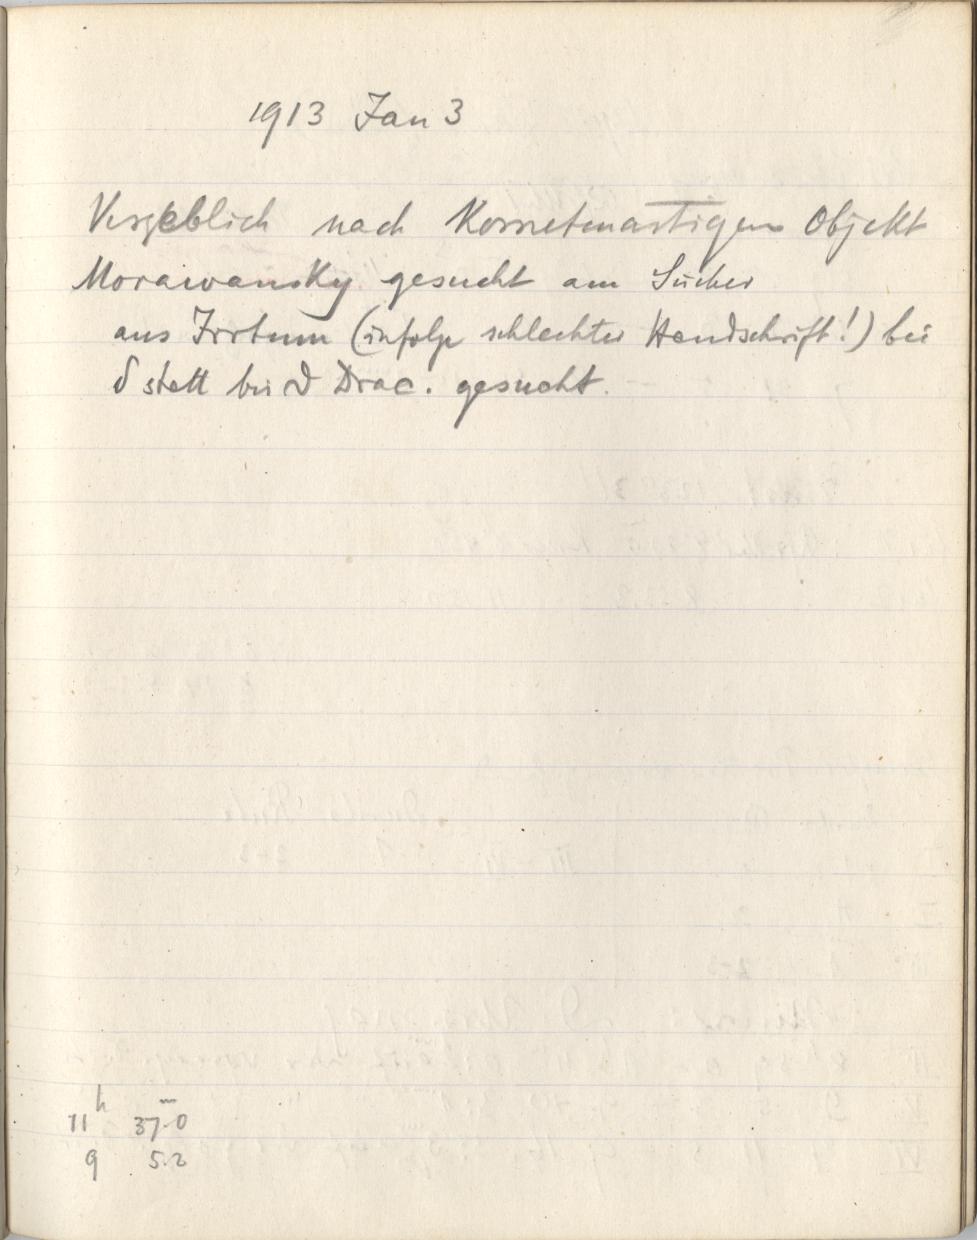 1913 Jan 3
Vergeblich nach Kometenartigen Objekt
Morawansky gesucht am Sucher
aus Irrtum (infolge schlechter Handschrift!) bei
δ statt bei ϑ Drac. gesucht.
11ʰ 37ᵐ.0
9 5.2